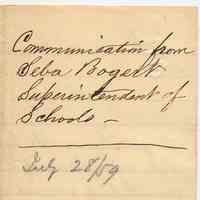 Communication from
Seba Bogert
Superintendent of
Schools —
July 28/59